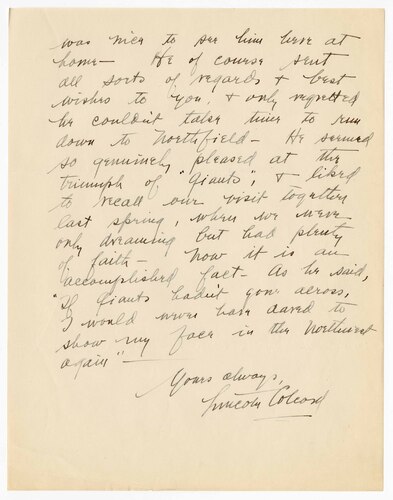 was nice to see him here at
home— He of course sent
all sorts of regards & best
wishes to you, & only regretted
he couldn't take time to run
down to Northfield— He seemed
so genuinely pleased at the
triumph of "Giants", & liked
to recall our visit together
last spring, when we were
only dreaming but had plenty
of faith— Now it is an
accomplished fact— As he said,
"If Giants hadn't gone across,
I would never have dared to
show my face in the Northwest
again"—
Yours always,
Lincoln Colcord